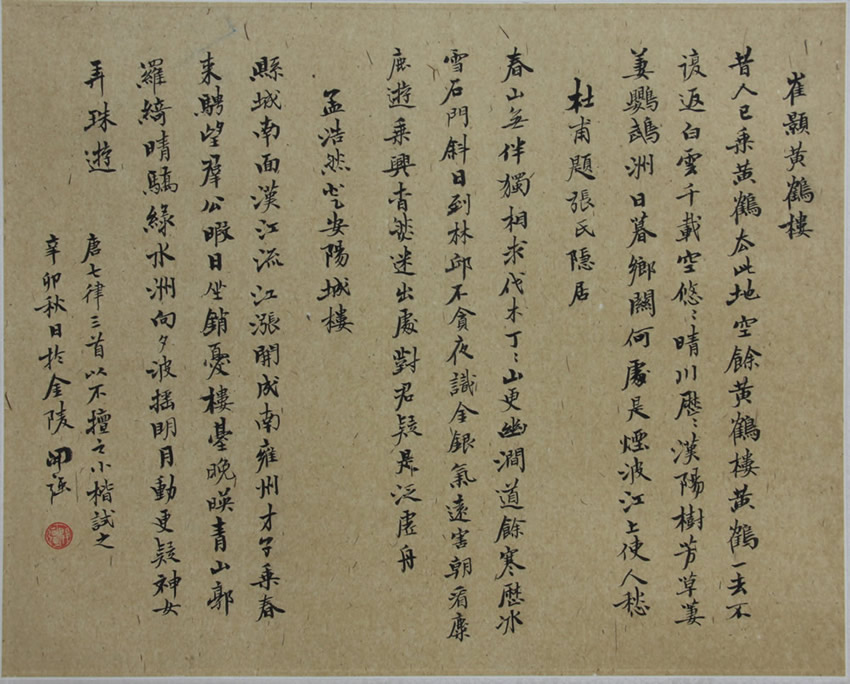 崔顥黃鶴樓
昔人已乘黃鶴去此地空餘黃鶴樓黃鶴一去不
復返白雲千載空悠〻晴川歷〻漢陽樹芳草萋
萋鸚鵡洲日暮鄉關何處是煙波江上使人愁
杜甫題張氏隱居
春山無伴獨相求伐木丁〻山更幽澗道餘寒歷冰
雪石門斜日到林邱不貪夜識金銀氣遠害朝看麋
鹿遊乘興杳然迷出處對君疑是泛虛舟
孟浩然登安陽城樓
縣城南面漢江流江漲開成南雍州才子乘春
来騁望羣公暇日坐銷憂樓臺晚映青山郭
羅綺晴驕綠水洲向夕波搖明月動更疑神女
弄珠遊
唐七律三首以不擅之小楷試之
辛卯秋日於金陵